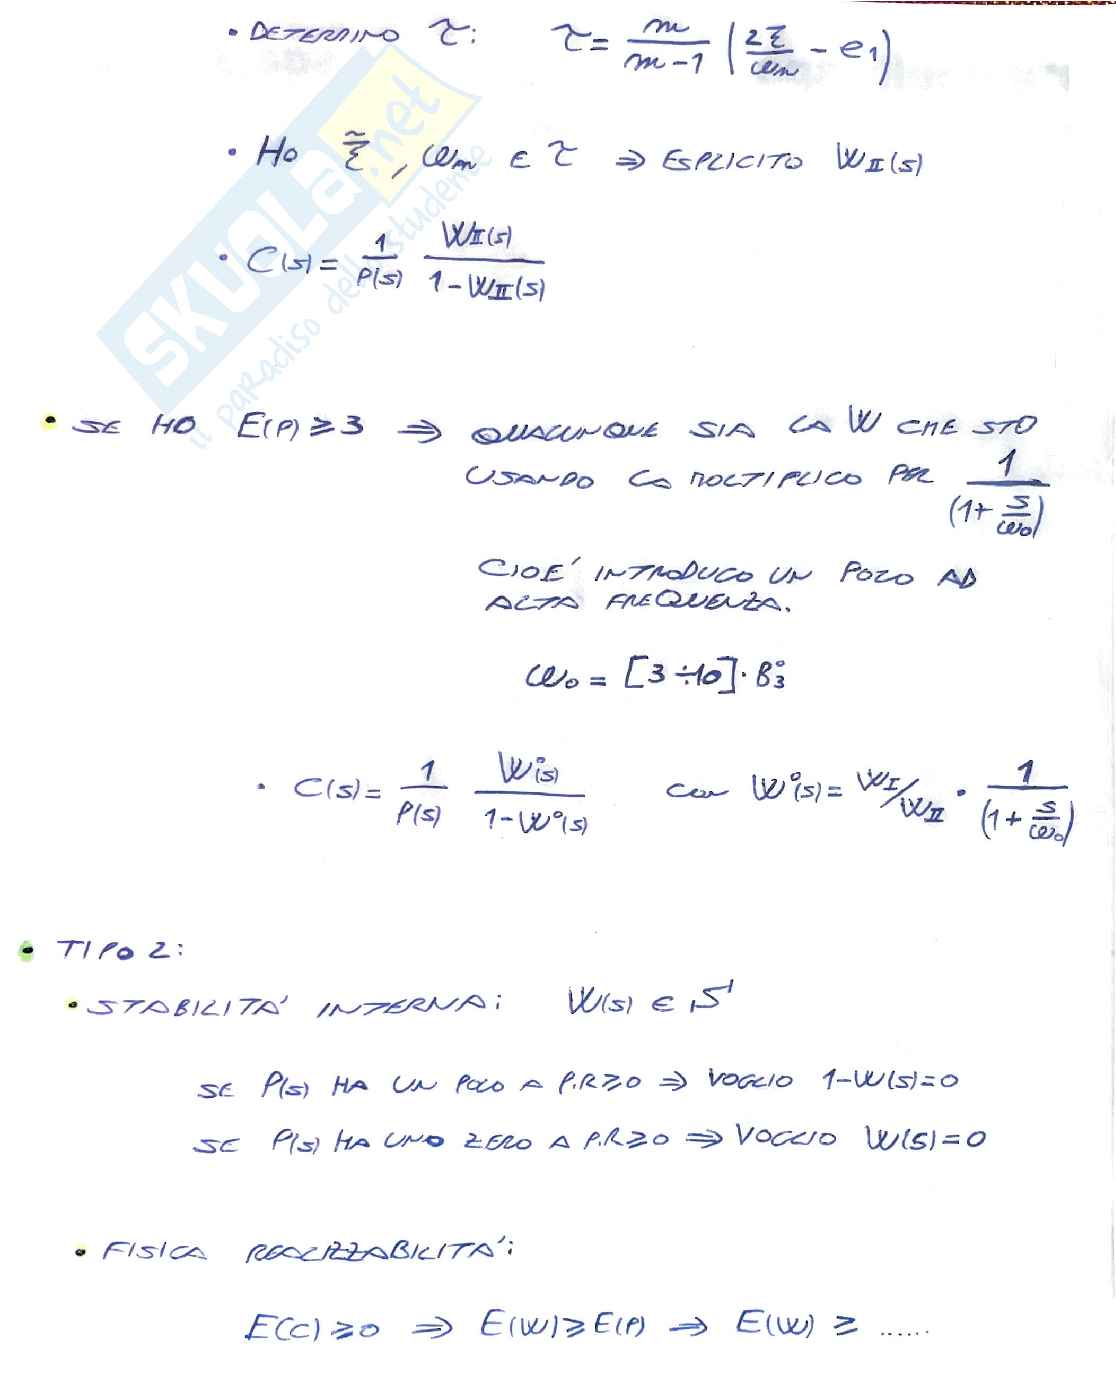 • DETERMINO τ: τ = m/(m-1) (2ξ̃/ωn - e1)
• HO ξ̃, ωn E τ ⇒ ESPLICITO WII(s)
• C(s) = 1/P(s) WII(s)/(1-WII(s))
SKUOLA.net
il paradiso dello studente
• SE HO E(P) ≥ 3 ⇒ QUALUNQUE SIA LA W CHE STO
USANDO LA MOLTIPLICO PER 1/(1+s/ω0)
CIOE' INTRODUCO UN POLO AD
ALTA FREQUENZA.
ω0 = [3÷10]·B3°
• C(s) = 1/P(s) W°(s)/(1-W°(s)) con W°(s) = WI/WII · 1/(1+s/ω0)
• TIPO 2:
• STABILITA' INTERNA: W(s) ∈ S
SE P(s) HA UN POLO A P.R≥0 ⇒ VOGLIO 1-W(s)=0
SE P(s) HA UNO ZERO A P.R≥0 ⇒ VOGLIO W(s)=0
• FISICA REALIZZABILITA':
E(C)≥0 ⇒ E(W)≥E(P) ⇒ E(W) ≥ ......